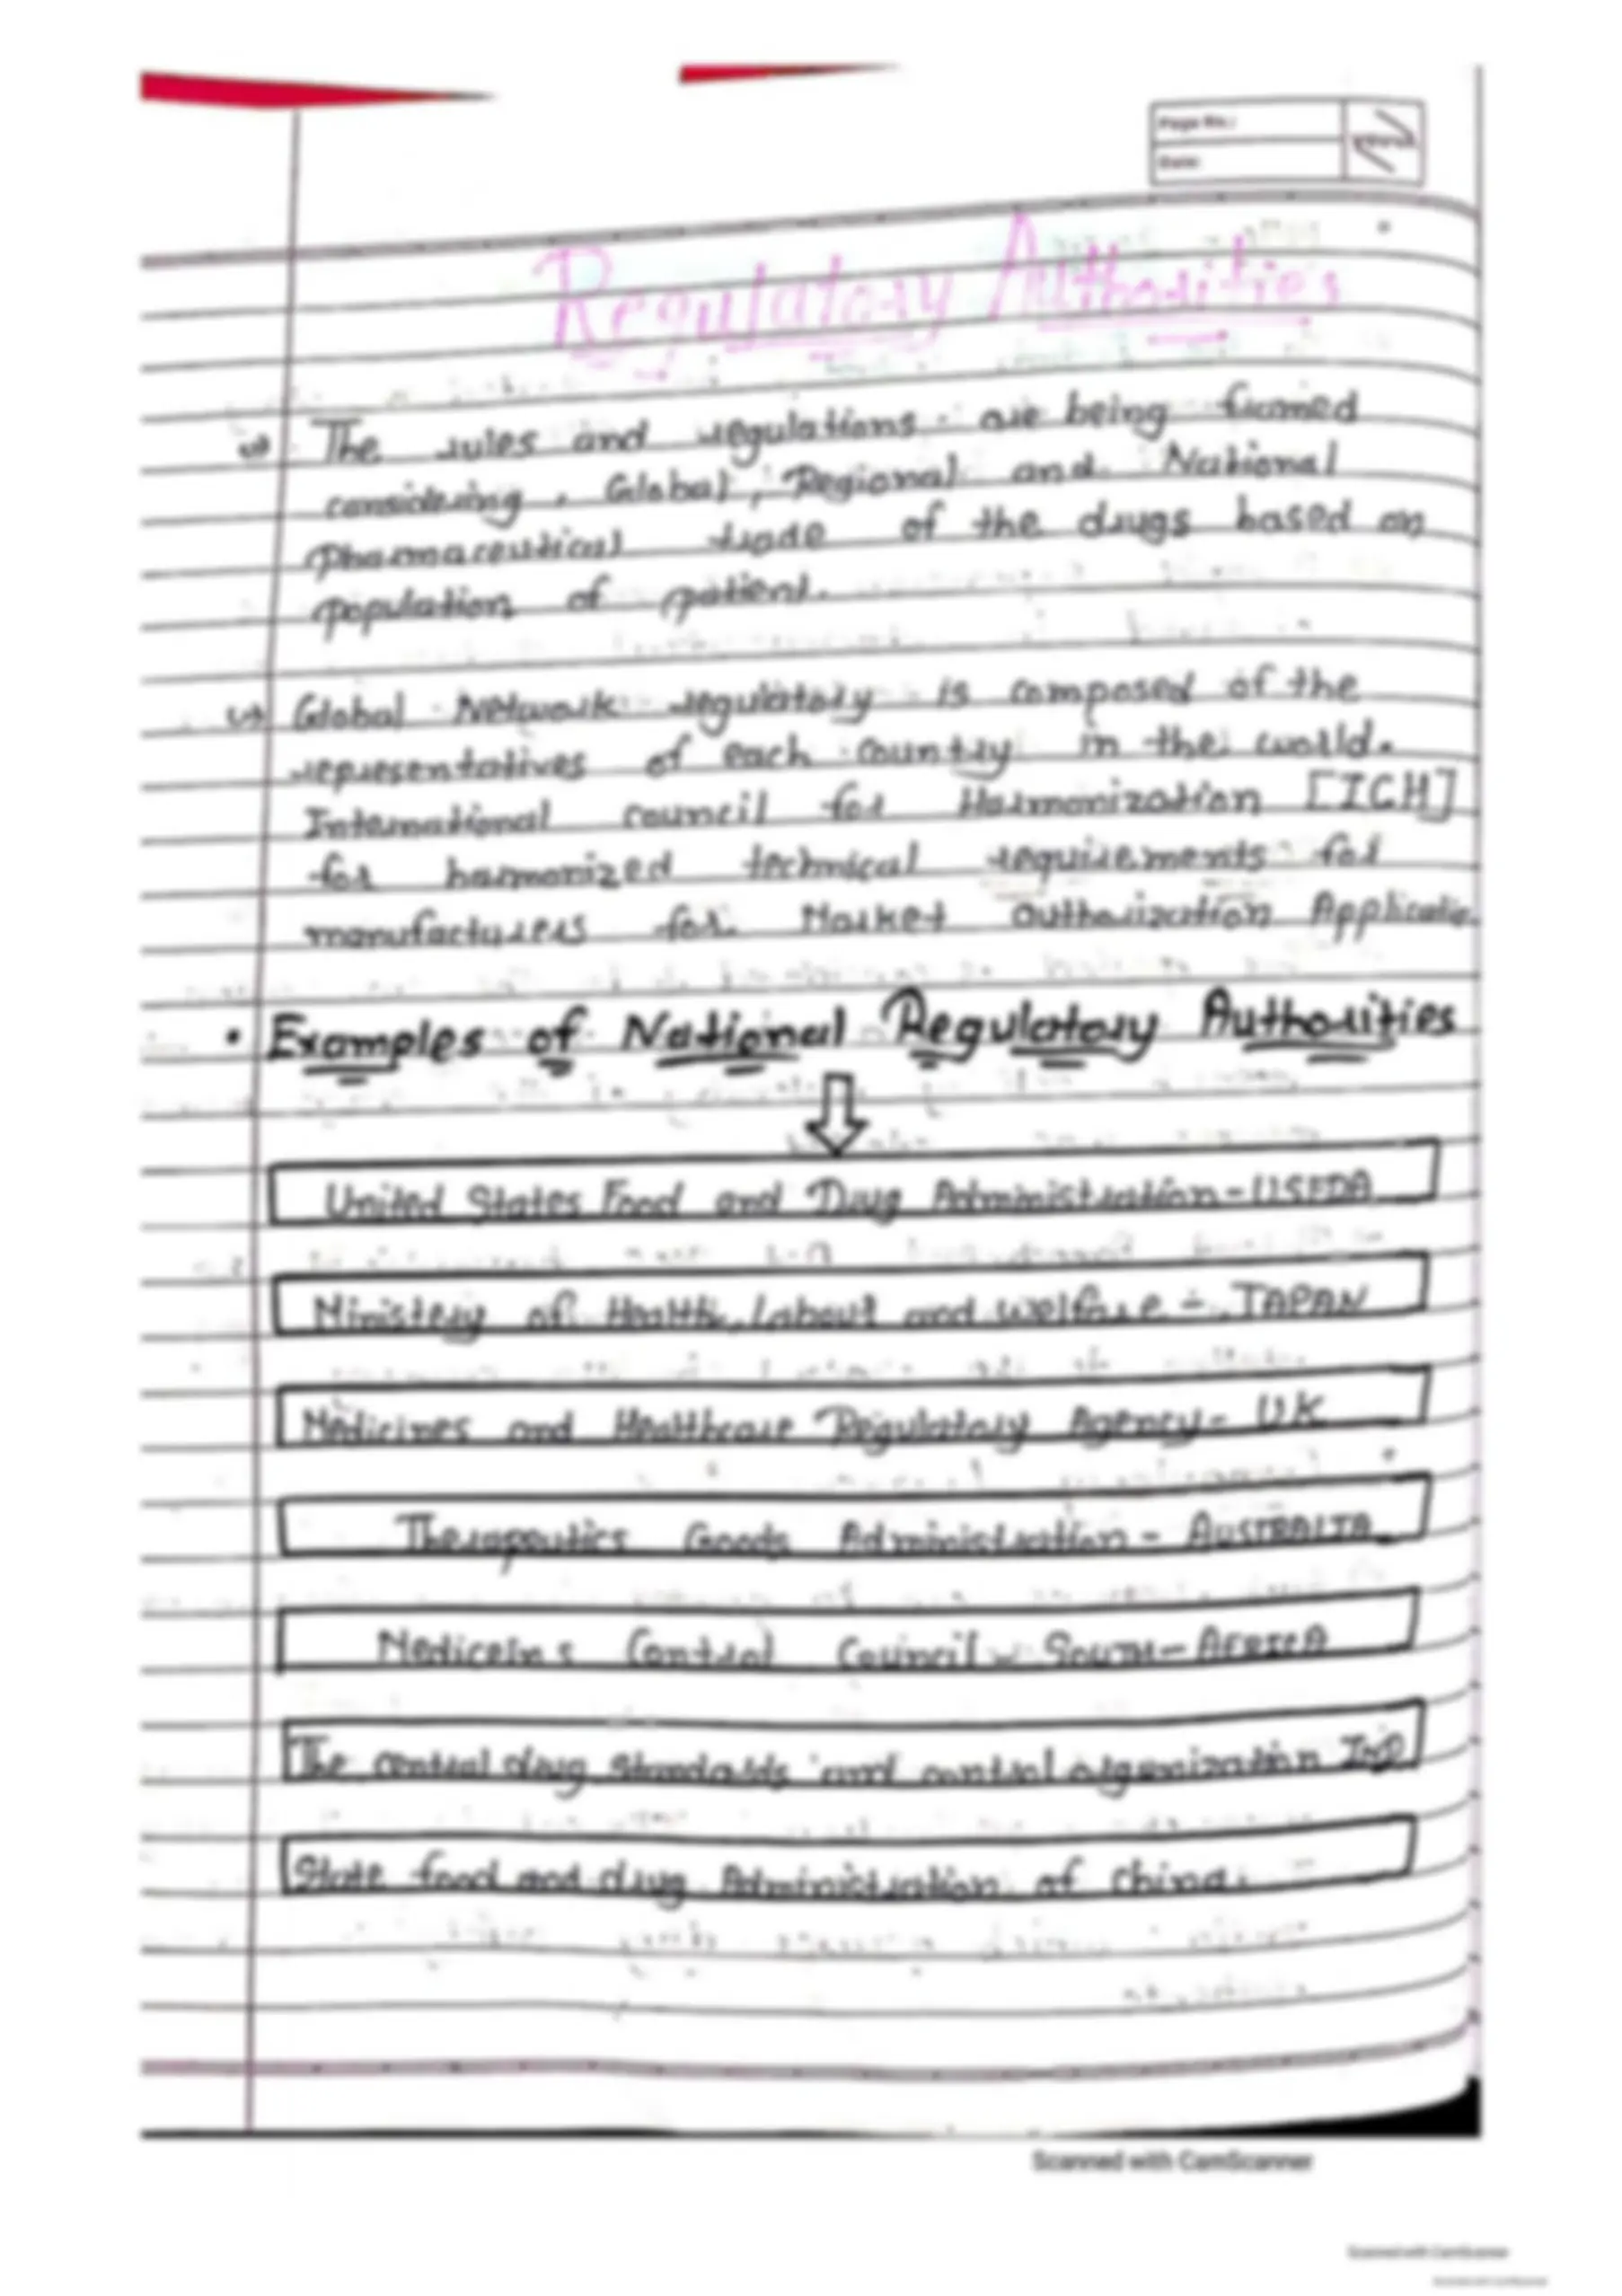 Page No.:
Date:
Regulatory Authorities
The rules and regulations are being framed
considering, Global, Regional and National
Pharmaceutical trade of the drugs based on
population of patient.
Global Network regulatory is composed of the
representatives of each country in the world.
International council for Harmonization [ICH]
for harmonized technical requirements for
manufacturers for Market authorization Applicatio
• Examples of National Regulatory Authorities
United States Food and Drug Administration - USFDA
Ministery of Health, Labour and welfare - JAPAN
Medicines and Healthcare Regulatory Agency - UK
Therapeutics Goods Administration - AUSTRALIA
Mediceins Control Council - SOUTH-AFRICA
The central drug standards and control organization
State food and drug Administration of china.
Scanned with CamScanner
Scanned with CamScanner
Scanned with CamScanner